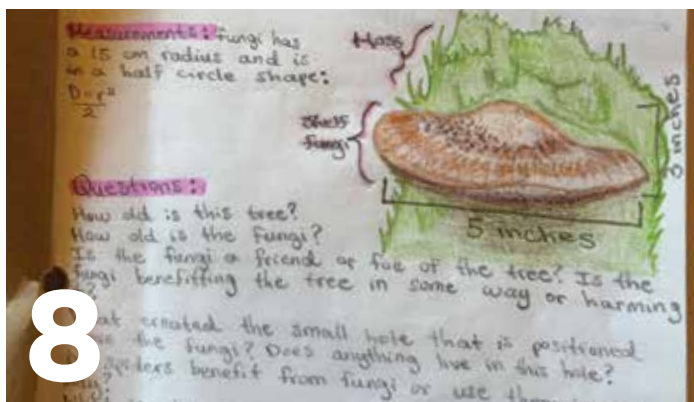 Measurements: Fungi has
a 15 cm radius and is
in a half circle shape:
D=r²
2
Moss
Shelf
Fungi
3 inches
5 inches
Questions:
How old is this tree?
How old is the fungi?
Is the fungi a friend or foe of the tree? Is the
fungi benefitting the tree in some way or harming
?
created the small hole that is positioned
the fungi? Does anything live in this hole?
benefit from fungi or use
8